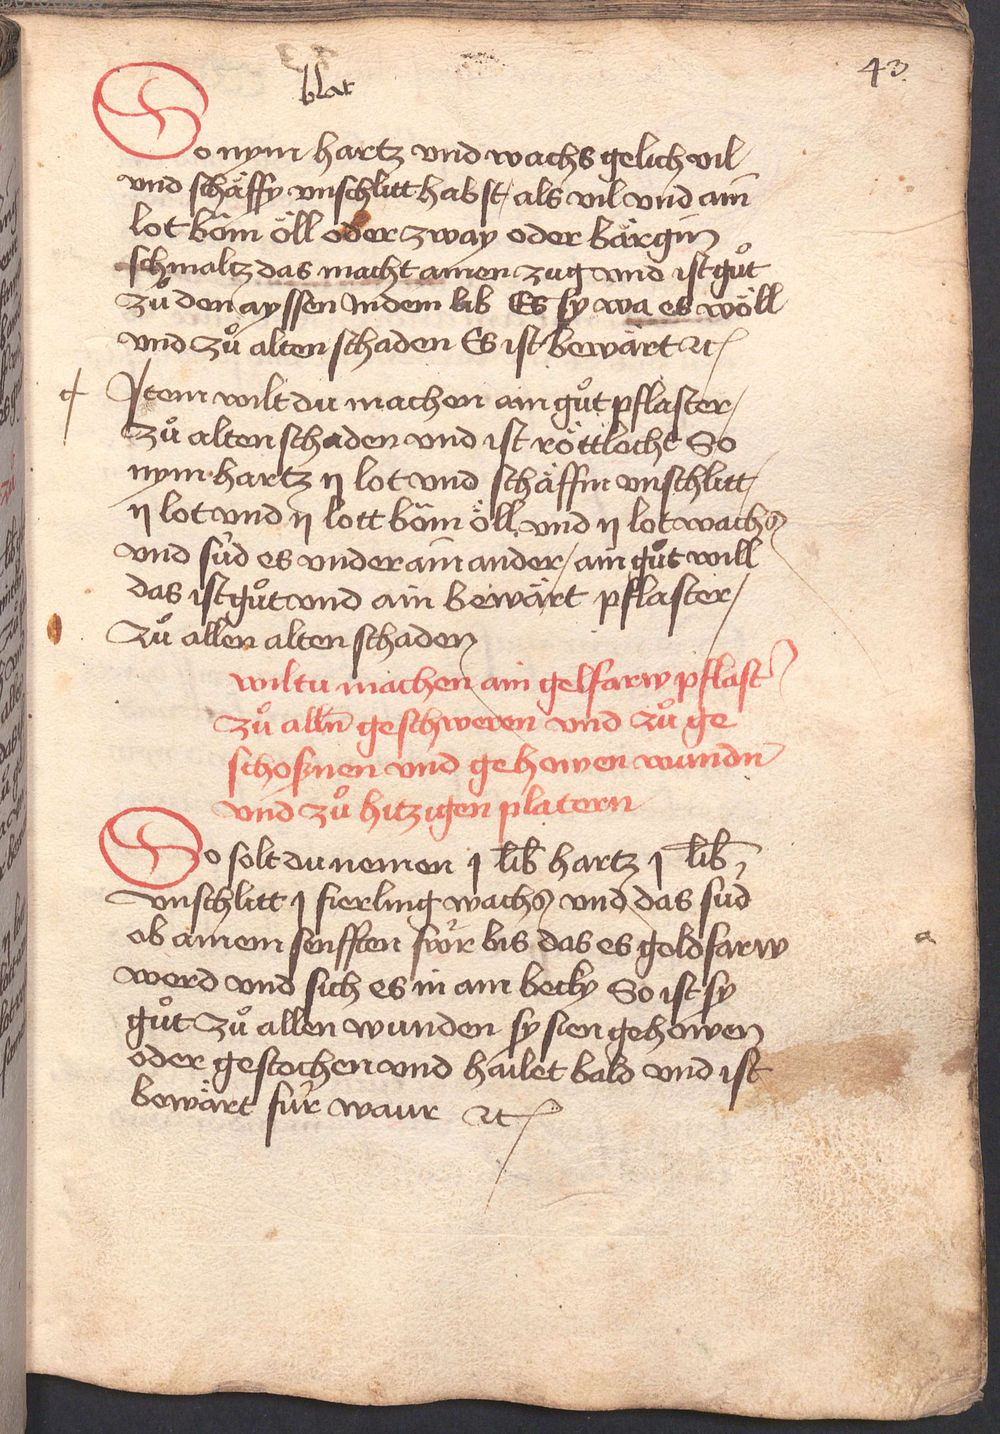 blat
43.
So nym hartz vnd wachs gelich vil
vnd schäffy vnschlitt habst / als vil vnd ain̄
lot böm öll oder zway oder bärgin
schmaltz das macht ainen zug vnd ist gůt
zů den ayssen Indem lib Es sy wa es wöll
vnd zů alten schaden Es ist bewärt ꝛc
Item wilt du machen ain gůt pflaster /
zů alten schaden vnd ist röttlecht So
nym hartz ij lot vnd schäffin vnschlitt
ij lot vnd ij lott böm öll vnd ij lot wachs
vnd süd es vnder ain ander / ain gůt will
das ist gůt vnd ain bewärt pflaster /
Zů allen alten schaden
wiltu machen ain gelfarw pflast
zů alln̄ geschweren vnd zů ge
schoßnen vnd gehowen wundn̄
vnd zů hitzigen platern
So solt du nemen j lib hartz j lib
vnschlitt j fierling wachs vnd das süd
ob ainem senfften fwr bis das es goldfarw
werd vnd sich es in ain becky So ist sy
gůt zů allen wunden sy sien gehowen
oder gestochen vnd hailet bald vnd ist
bewärt für waur ꝛc